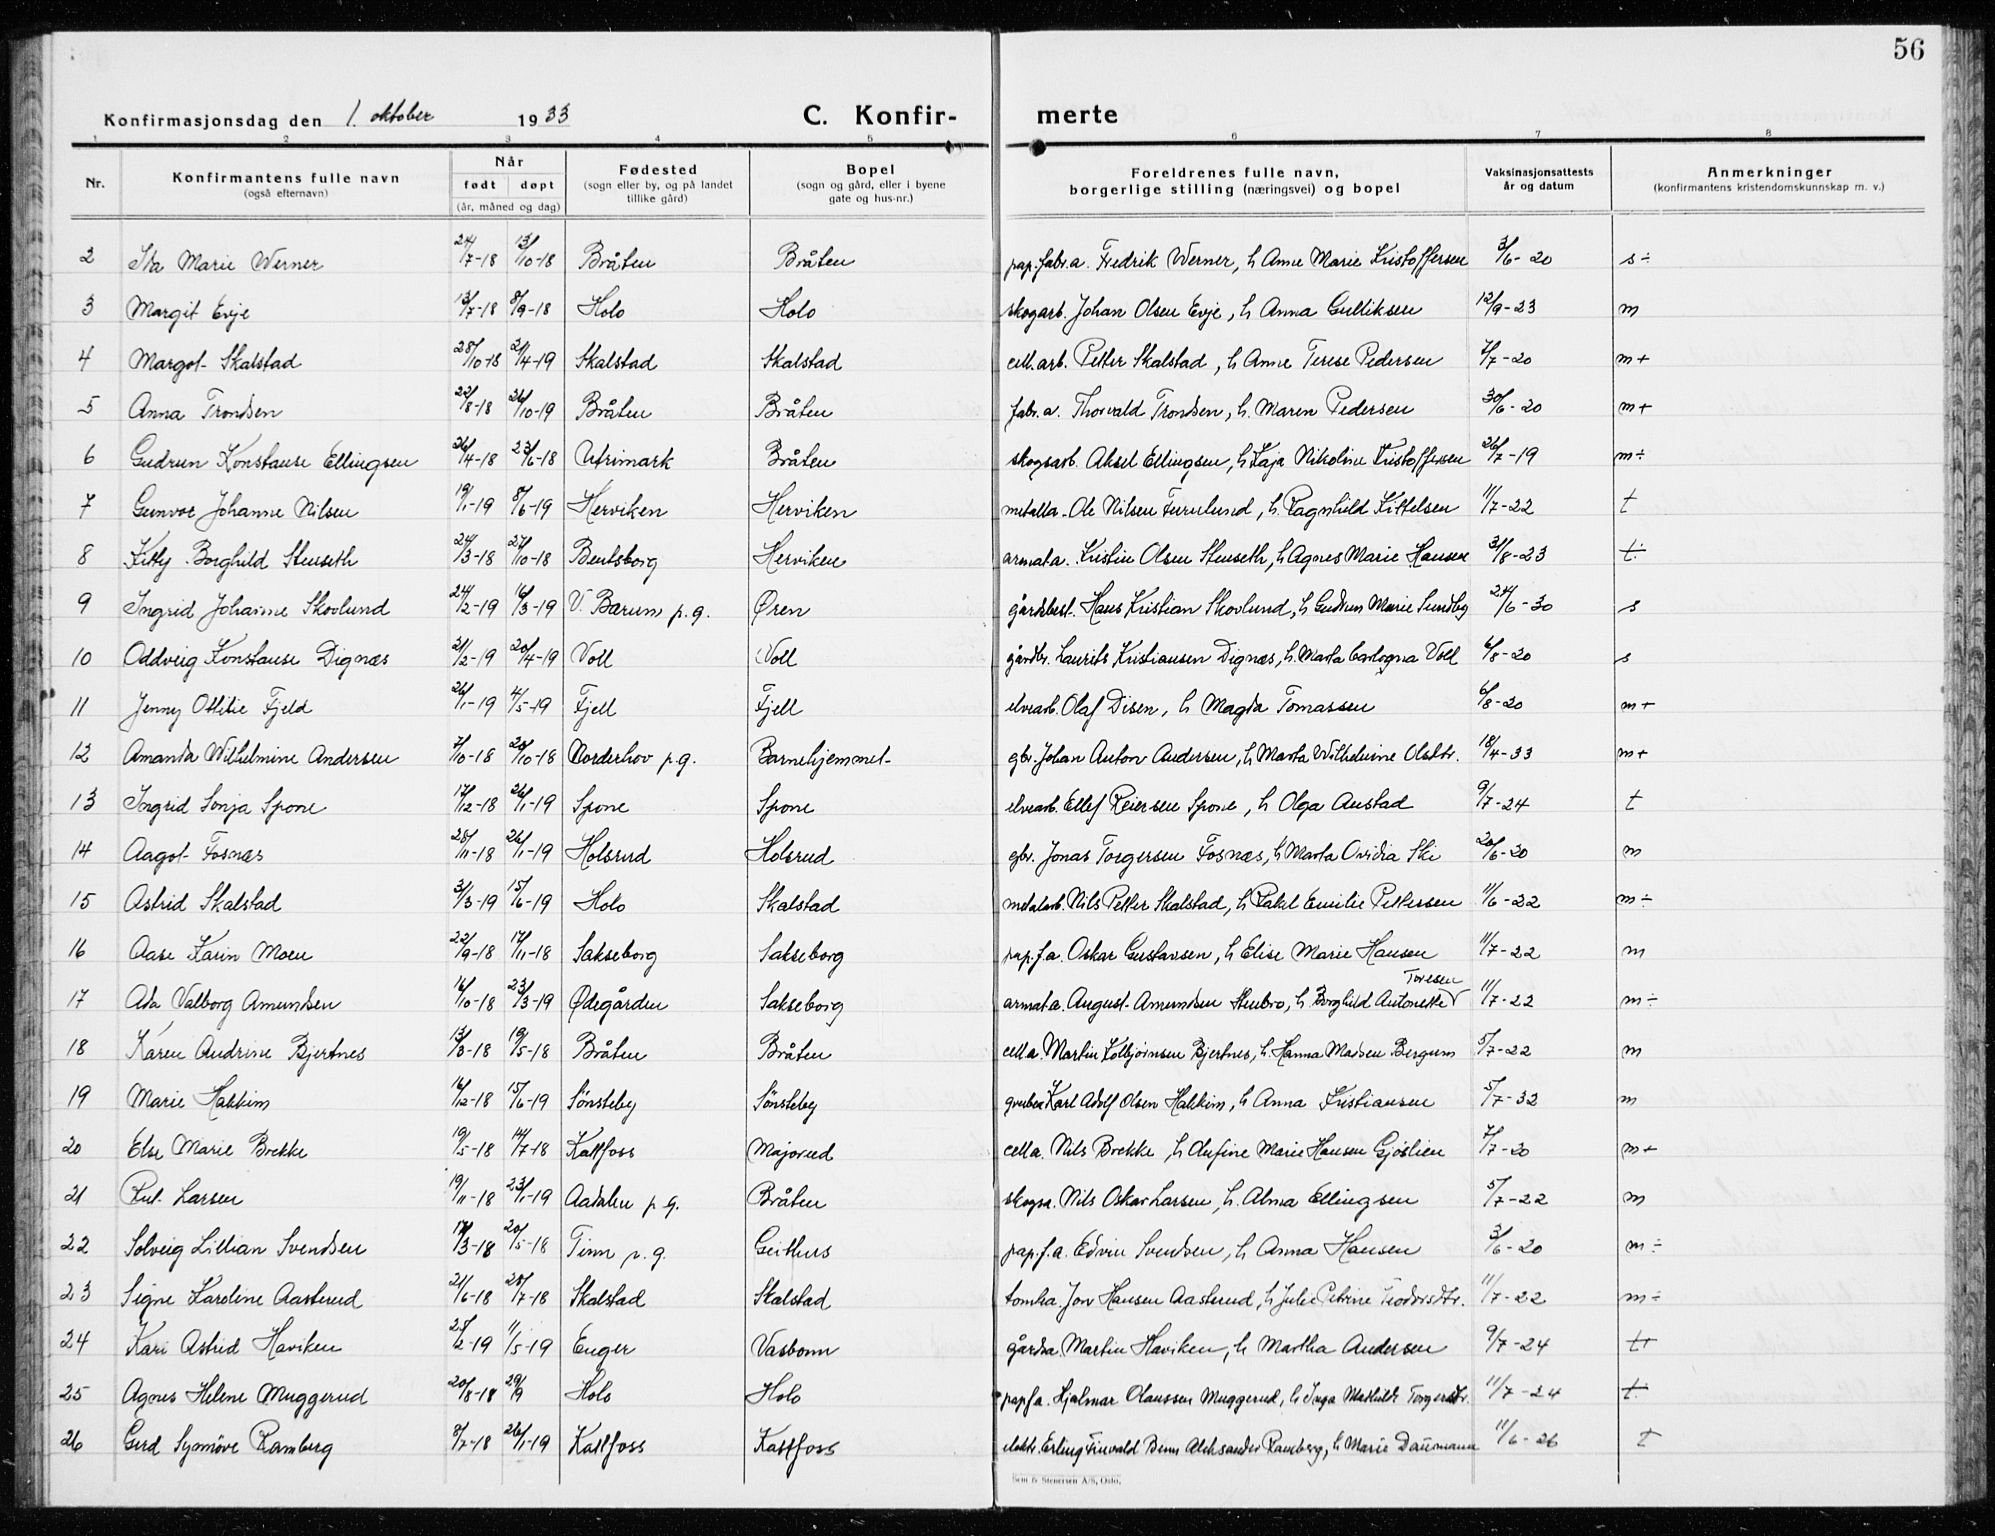 56
Konfirmasjonsdag den 1. oktober 1933 C. Konfir- merte
1 2 3 4 5 6 7 8
Nr. Konfirmantens fulle navn (også efternavn) Når født døpt (år, måned og dag) Fødested (sogn eller by, og på landet tillike gård) Bopel (sogn og gård, eller i byene gate og hus-nr.) Foreldrenes fulle navn, borgerlige stilling (næringsvei) og bopel Vaksinasjonsattests år og datum Anmerkninger (konfirmantens kristendomskunnskap m. v.)
2 Ida Marie Werner 24/7-18 13/10-18 Bråten Bråten pap.fabr.a. Fredrik Werner, h Anne Marie Kristoffersen 3/6-20 s÷
3 Margit Evje 13/7-18 8/9-18 Holo Holo skogarb. Johan Olsen Evje, h Anna Gulliksen 12/9-23 m
4 Margot Skalstad 28/10-18 21/4-19 Skalstad Skalstad cell.arb. Petter Skalstad, h Anne Terese Pedersen 7/7-20 m+
5 Anna Trondsen 22/8-18 26/10-19 Bråten Bråten fabr.a. Thorvald Trondsen, h. Maren Pedersen 30/6-20 m+
6 Gudrun Konstanse Ellingsen 26/4-18 23/6-18 Utrimark Bråten skogsarb. Aksel Ellingsen, h Kaja Nikoline Kristoffersen 26/7-19 m÷
7 Gunvor Johanne Nilsen 19/1-19 8/6-19 Herviken Herviken metalla. Ole Nilsen Furulund, h. Ragnhild Kittelsen 11/7-22 t
8 Kitty Borghild Stenseth 24/3-18 27/10-18 Bentsborg Herviken armat.a. Kristin Olsen Stenseth, h Agnes Marie Hansen 31/8-23 t÷
9 Ingrid Johanne Skovlund 24/2-19 16/3-19 V. Bærum p.g. Øren gårdsbest. Hans Kristian Skovlund, h Gudrun Marie Sundby 24/6-30 s
10 Oddveig Konstanse Dignæs 21/2-19 20/4-19 Voll Voll gårdbr. Laurits Kristiansen Dignæs, h. Marta Voll 6/8-20 s
11 Jenny Ottilie Fjeld 26/1-19 4/5-19 Fjell Fjell elvearb. Olaf Disen, h Magda Tomassen 6/8-20 m+
12 Amanda Wilhelmine Andersen 7/10-18 20/10-18 Norderhov p.g. Barnehjemmet gbr. Johan Anton Andersen, h Marta Wilhelmine Olsdtr. 18/4-33 m+
13 Ingrid Sonja Spone 17/12-18 26/1-19 Spone Spone elvearb. Ellef Reiersen Spone, h Olga Austad 9/7-24 t
14 Aagot Fosnæs 28/11-18 26/1-19 Holsrud Holsrud gbr. Jonas Torgersen Fosnæs, h Marta Ovidia Ski 20/6-20 m
15 Astrid Skalstad 3/3-19 15/6-19 Holo Skalstad metalarb. Nils Petter Skalstad, h Rakel Emilie Pettersen 11/6-22 m÷
16 Aase Karin Moen 22/9-18 17/11-18 Sakseborg Sakseborg pap.f.a. Oskar Gustavsen, h Elise Marie Hansen 11/7-22 m
17 Ada Valborg Amundsen 16/10-18 23/3-19 Ødegården Sakseborg armat.a. August Amundsen Stenbro, h Borghild Antonette Toresen 11/7-22 m÷
18 Karen Andrine Bjertnes 13/3-18 19/5-18 Bråten Bråten cell.a. Martin Kolbjørnsen Bjertnes, h. Hanna Madsen Bergum 5/7-22 m
19 Marie Hakkim 16/12-18 15/6-19 Sønsteby Sønsteby Karl Adolf Olsen Hakkim, h Anna Kristiansen 5/7-32 m
20 Else Marie Brekke 19/5-18 14/7-18 Kattfoss Majorud cell a. Nils Brekke, h Anfine Marie Hansen Gjøslien 7/7-20 m+
21 Rut Larsen 19/11-18 23/1-19 Aadalen p.g. Bråten skogsa. Nils Oskar Larsen, h. Alma Ellingsen 5/7-22 m
22 Solveig Lillian Svendsen 17/3-18 20/5-18 Tinn p.g. Geithus pap.f.a. Edvin Svendsen, h Anna Hansen 3/6-20 m÷
23 Signe Karoline Aasterud 21/6-18 28/7-18 Skalstad Skalstad Jon Hansen Aasterud, h Julie Petrine Teodorsdtr. 11/7-22 m÷
24 Kari Astrid Haviken 25/2-19 11/5-19 Enger Vasbonn gårdsa. Martin Haviken, h Martha Andersen 9/7-24 t+
25 Agnes Helene Muggerud 20/8-18 29/9 Holo Holo papf a. Hjalmar Olaussen Muggerud, h Inga Mathilde Torgersdtr. 11/7-24 t÷
26 Gerd Synnöve Ramberg 8/7-18 26/1-19 Kattfoss Kattfoss elektr. Erling Aleksander Ramberg, h Marie Daumann 11/6-26 t
Sem & Stenersen A/S, Oslo.